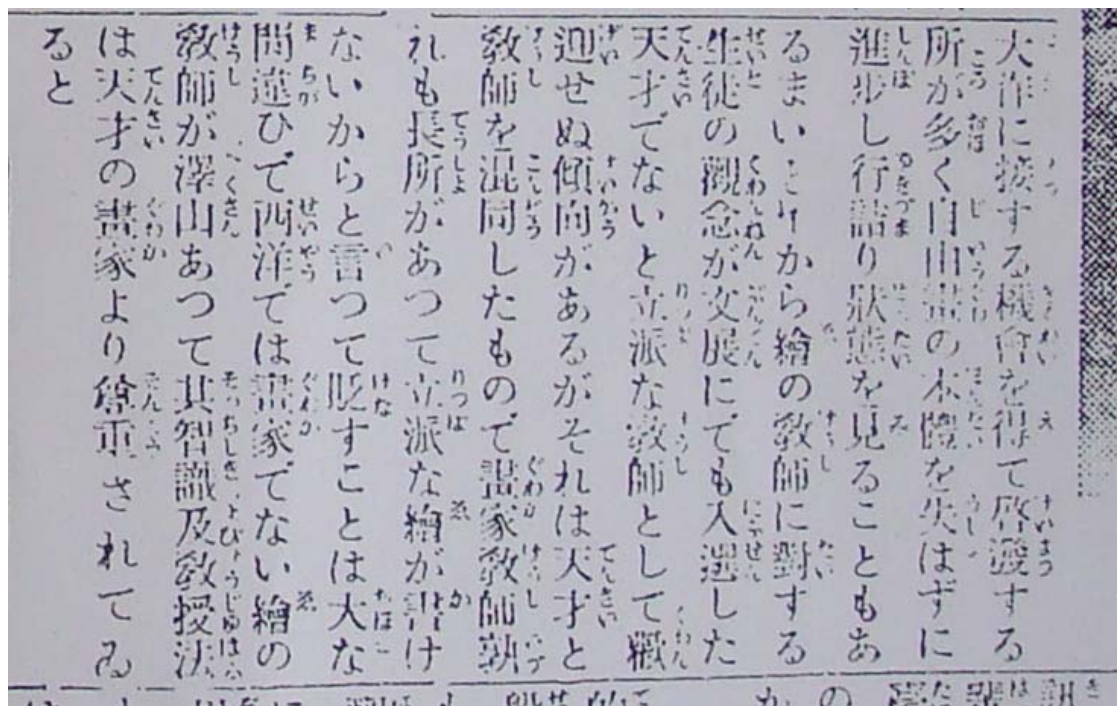 大作に接する機會を得て啓發する
所が多く自由畫の本體を失はずに
進步し行詰り狀態を見ることもあ
るまいそれから繪の敎師に對する
生徒の觀念が文展にでも入選した
天才でないと立派な敎師として歡
迎せぬ傾向があるがそれは天才と
敎師を混同したもので畫家敎師孰
れも長所があつて立派な繪が書け
ないからと言つて貶すことは大な
間違ひで西洋では畫家でない繪の
敎師が澤山あつて其智識及敎授法
は天才の畫家より尊重されてゐ
ると